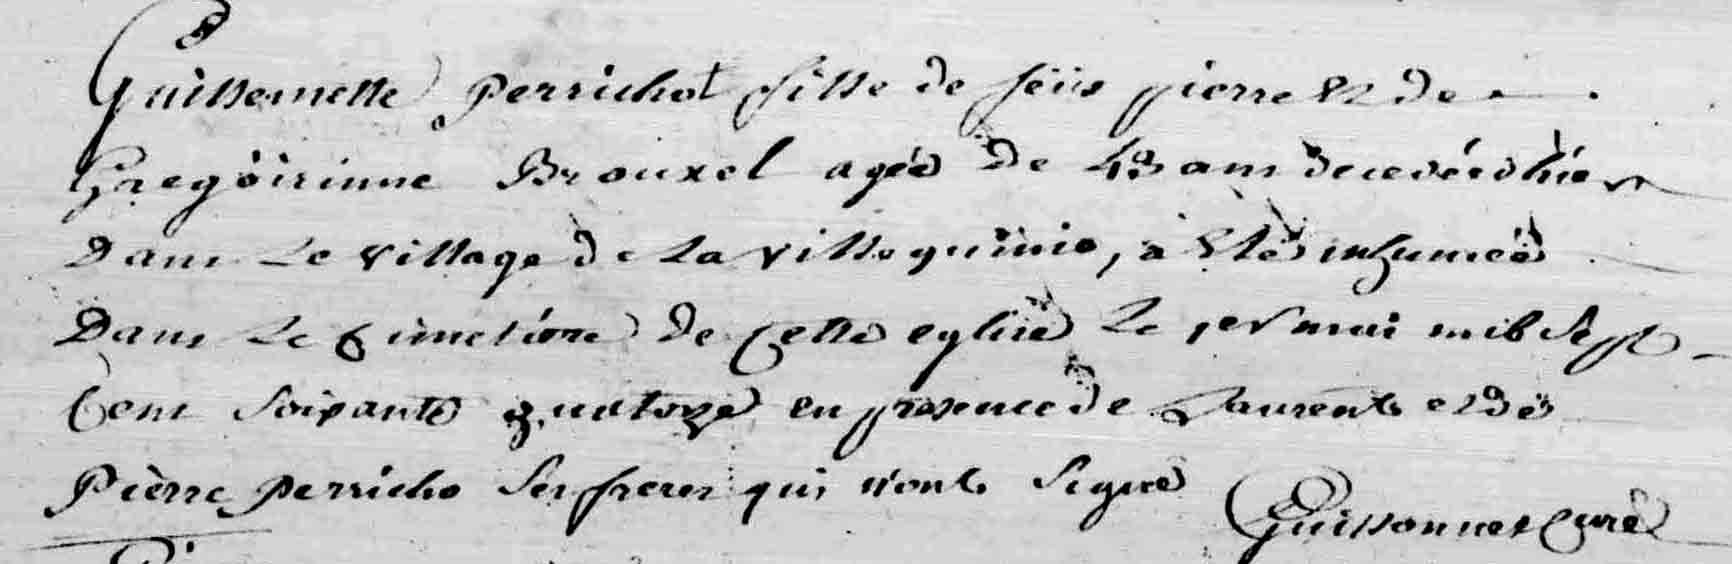 Guillemette perrichot fille de feüe pierre et de
Gregoirinne Brouxel agée de 48 ans decedée hier
Dans Le village de La ville guinio, à Eté inhumée
Dans Le Cimetiere de Cette eglise Le 1er mai mil Sept
Cent Soixante quatorze en presence de Laurent et de
Pièrre perricho Ses freres qui n'ont Signé
Guillonnet Curé